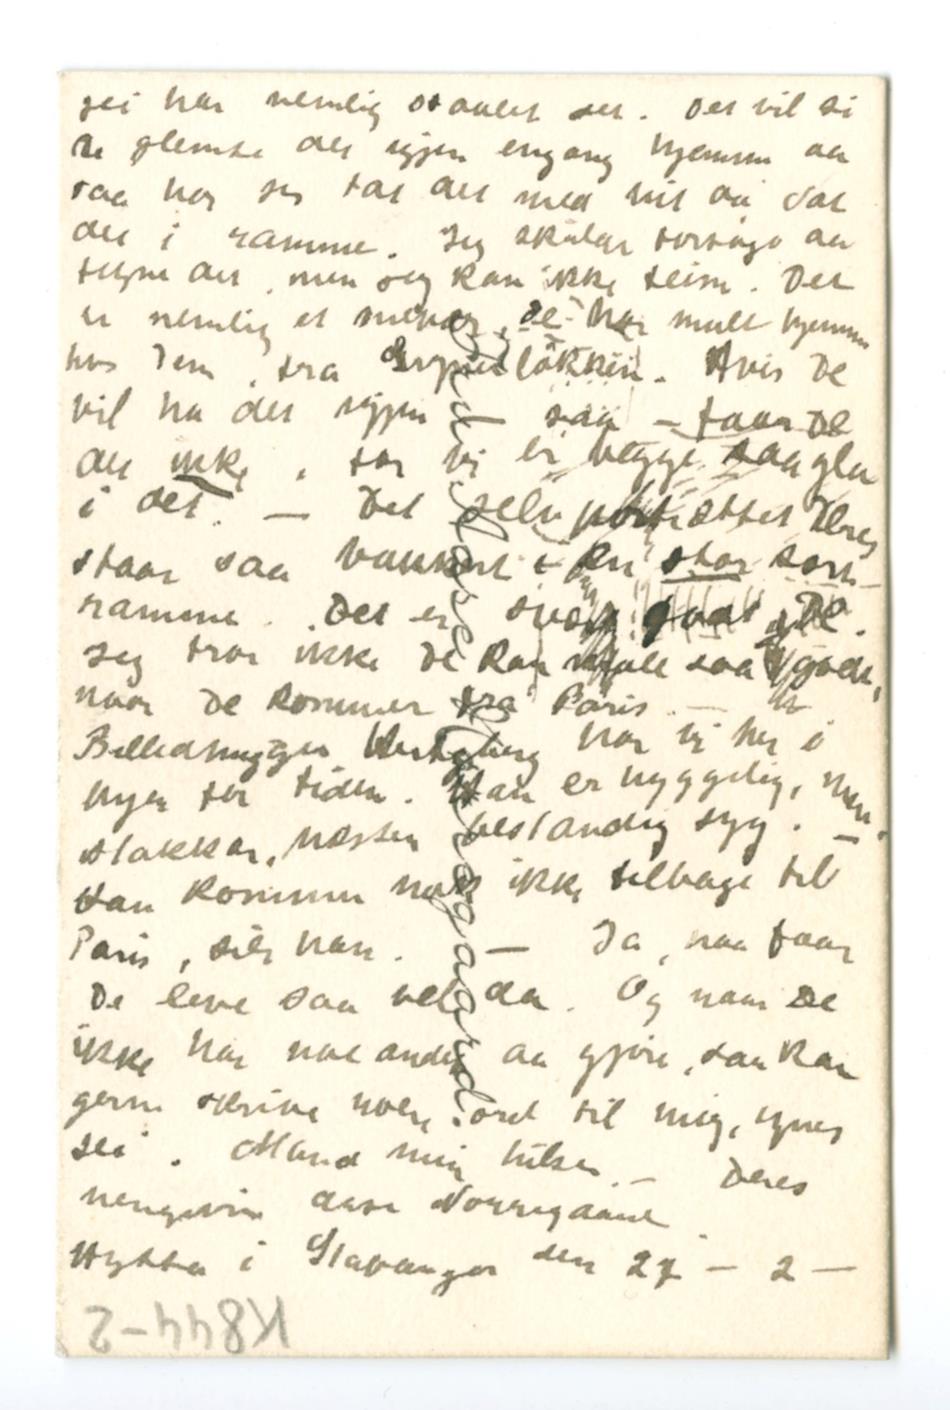 jei har nemlig staalet det. Det vil si
De glemte det igjen engang hjemme aa
saa har jeg tat det med hit aa sat
det i ramme. Jeg skulde forsøge aa
tegne det, men jeg kan ikke Det
er nemlig et De har malt hjemme
hos Dem, fra Grynerløkken. Hvis De
vil ha det igjen – saa – faar De
det ikke, for vi er begge saa gla
i det. – Det selvportrættet Deres
staar saa vakkert i en stor sort
ramme. Det er svært godt, De.
Jeg tror ikke De kan male saa godt,
naar De kommer fra Paris –
Billedhugger har vi her i
byen for tiden. Han er hyggelig, men,
stakkar, næsten bestandig syg. –
Han kommer nok ikke tilbage til
Paris, sier han. – Ja, naa faar
De leve saa vel da. Og naar De
ikke har noe andet aa gjøre, saa kan
gerne skrive noen ord til mig, synes
jei. Mand min hilsen – Deres
hengivne Aase Nørregaard
Hytta i Stavanger den 27 – 2 –
Fru Aase Nørregaard.
K844-2